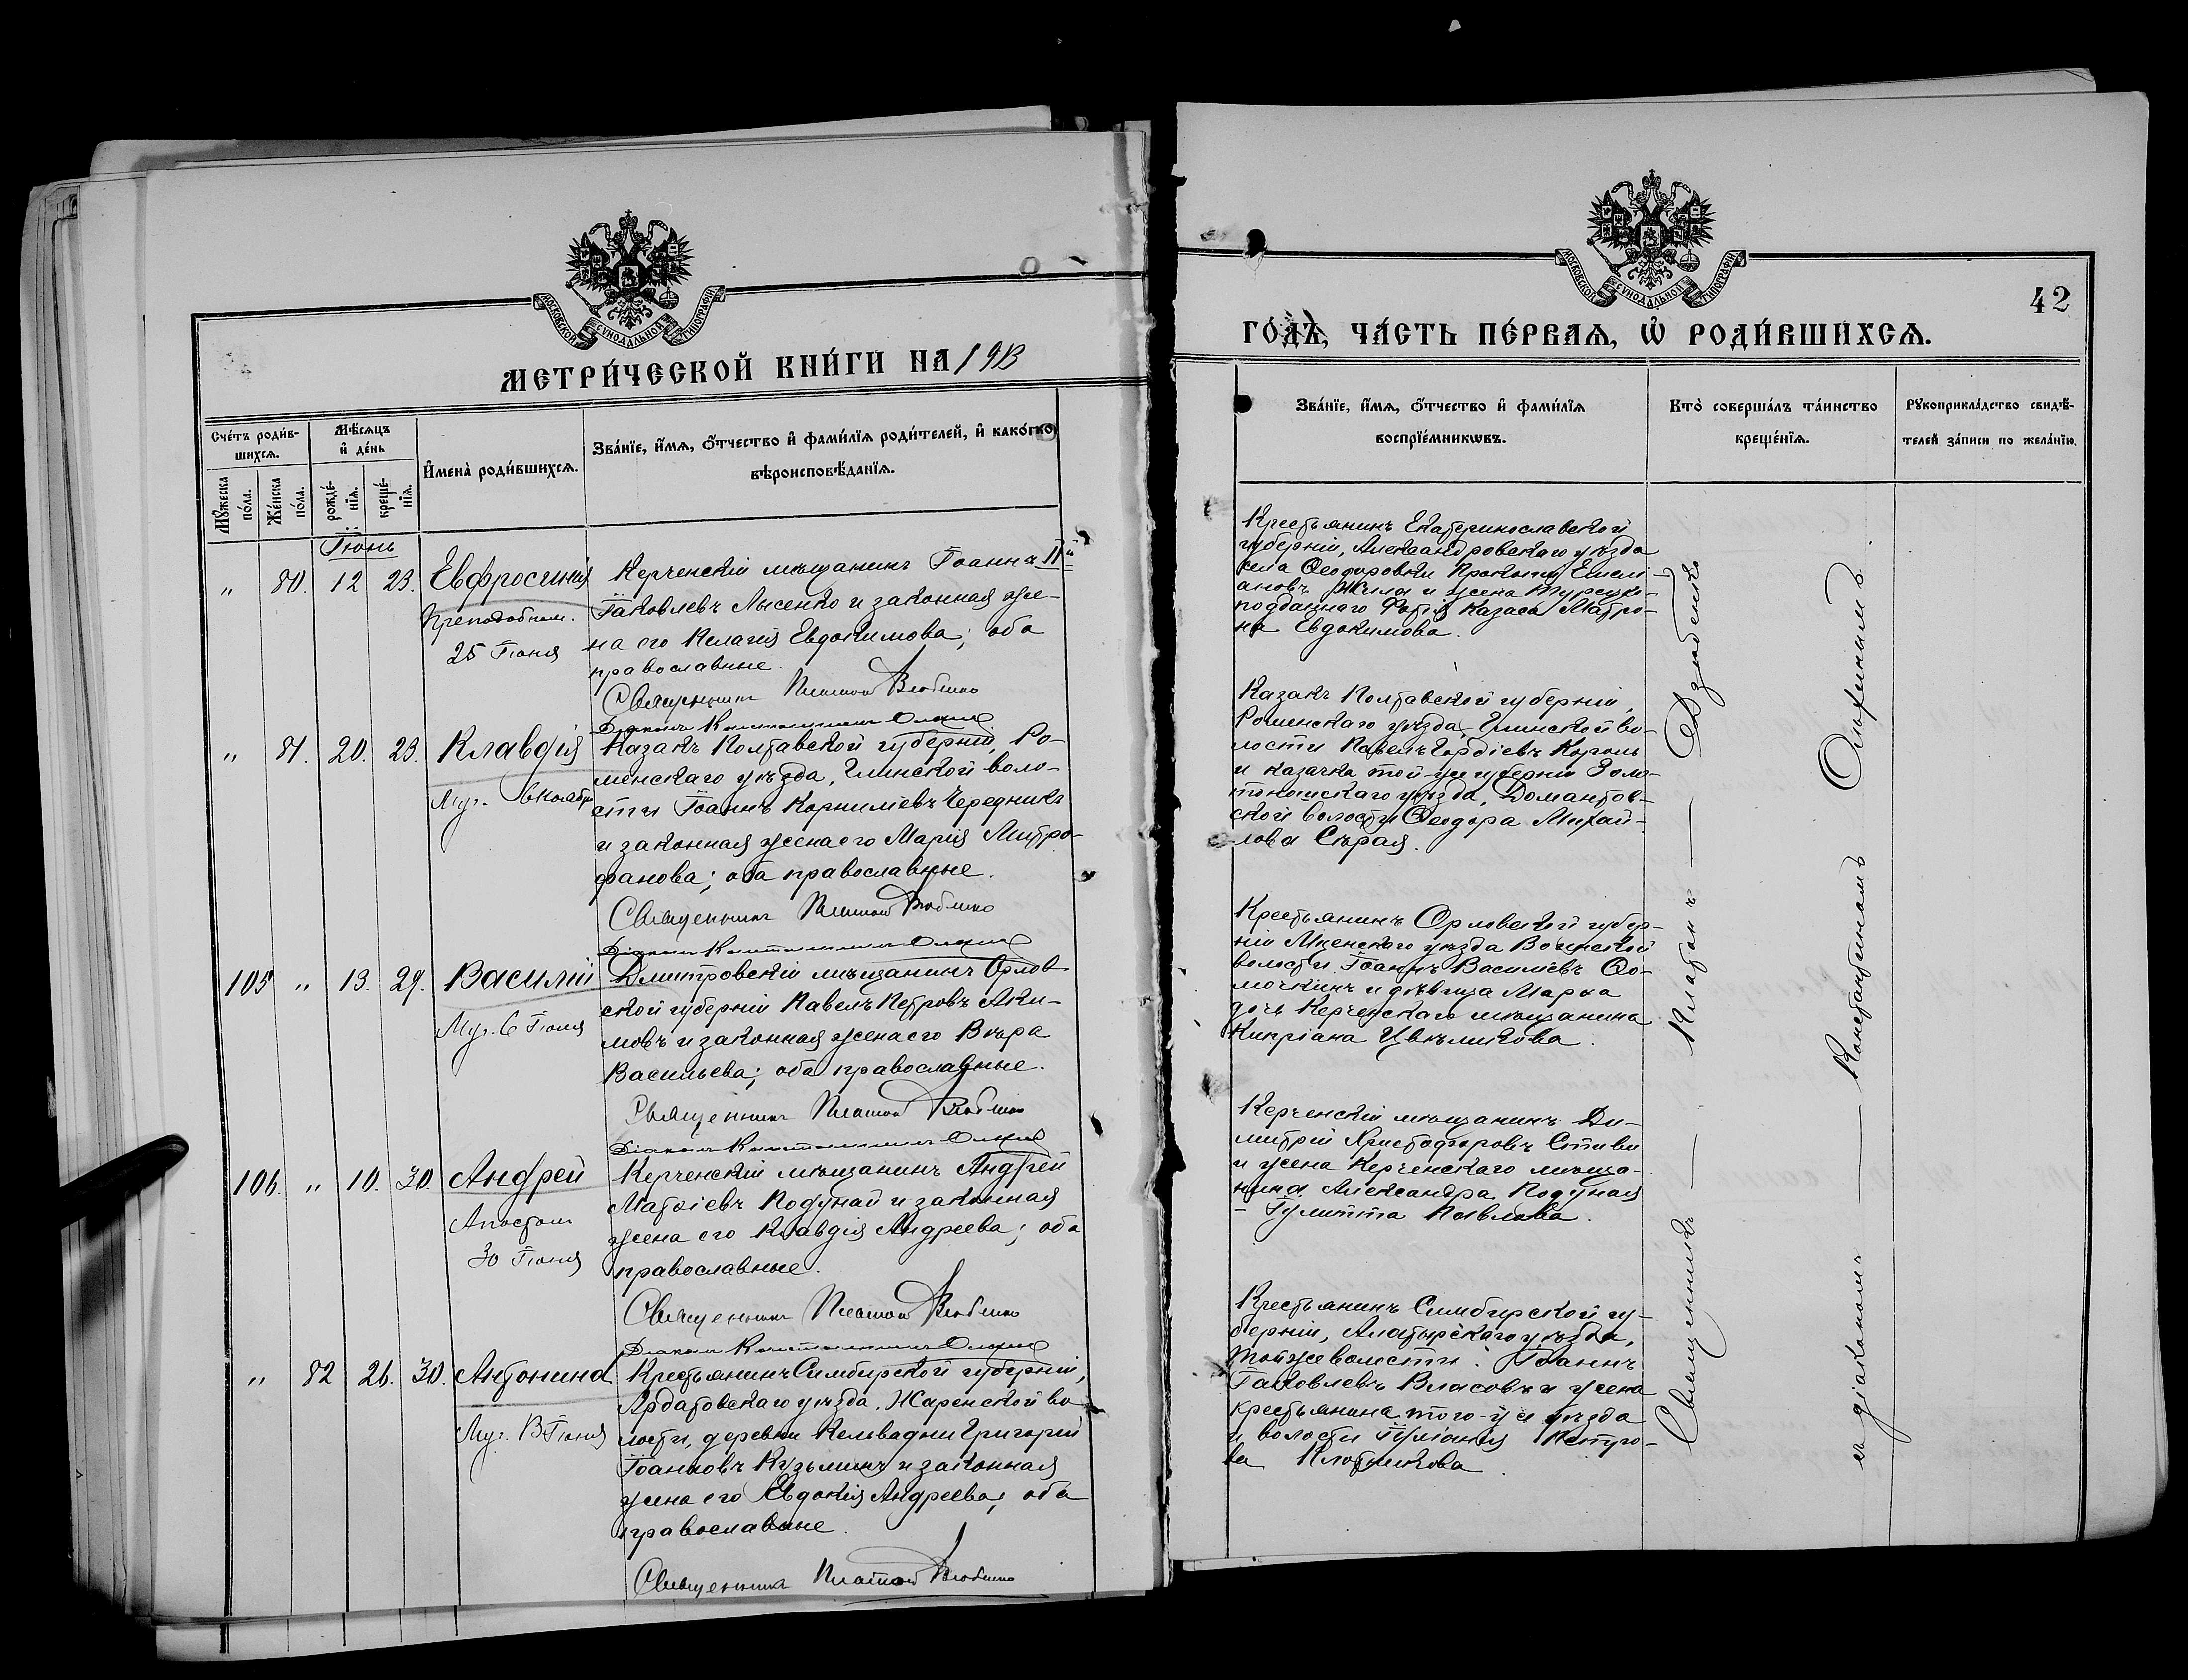 МОСКОВСКОЙ СѴНОДАЛЬНОЙ ТИПОГРАФІИ
МЕТРИ́ЧЕСКОЙ КНИ́ГИ НА 1913
Сче́тъ роди́вшихся.
Мꙋ́жеска по́ла.
Же́нска по́ла.
Мѣ́сяцъ и҆ де́нь
рожде́нїѧ.
креще́нїѧ.
И҆мена̀ роди́вшихсѧ.
Зва́нїе, и҆́мѧ, ѻ҆́тчество и҆ фами́лїѧ роди́телей, и҆ како́гѡ
вѣроисповѣ́данїѧ.
Іюнь
" 80. 12 23. Евфросинія
Преподобном.
25 Іюня
Керченскій мѣщанинъ Іоаннъ IIй
Іаковлевъ Лысенко и законная же-
на его Пелагія Евдокимова; оба
православные.
Священникъ Платонъ
Діаконъ Константинъ
" 81. 20. 23. Клавдія
Муч. 6 Ноября
Казакъ Полтавской губерніи, Ро-
менскаго уѣзда, Глинской воло-
сти Іоаннъ Корниліевъ Чередникъ
и законная жена его Марія Митро-
фанова; оба православные.
Священникъ Платонъ
Діаконъ Константинъ
105 " 13. 29. Василій
Муч. 6 Іюля
Дмитровскій мѣщанинъ Орлов
ской губерніи Павелъ Петровъ Аки-
мовъ и законная жена его Вѣра
Васильева; оба православные.
Священникъ Платонъ
Діаконъ Константинъ
106. " 10. 30. Андрей
Апостол
30 Іюня
Керченскій мѣщанинъ Андрей
Матѳіевъ Подунай и законная
жена его Клавдія Андреева; оба
православные.
Священникъ Платонъ
Діаконъ Константинъ
" 82 26. 30. Антонина
Муч. 13 Іюня
Крестьянинъ Симбирской губерніи,
Ардатовскаго уѣзда, Жаренской во-
лости, деревни Григорій
Іоанновъ Кузьминъ и законная
жена его Евдокія Андреева; оба
православные.
Священникъ Платонъ
МОСКОВСКОЙ СѴНОДАЛЬНОЙ ТИПОГРАФІИ
42
ГО́ДЪ, ЧА́СТЬ ПЕ́РВАѦ, Ѽ РОДИ́ВШИХСѦ.
Зва́нїе, и҆́мѧ, ѻ҆́тчество и҆ фами́лїѧ
воспрїе́мникѡвъ.
Кто̀ соверша́лъ та́инство
креще́нїѧ.
Рꙋкоприкла́дство свидѣ́-
телей за́писи по жела́нїю.
Крестьянинъ Екатеринославской
губерніи, Александровскаго уѣзда
села Ѳеодоровки Прокопій Емели-
ановъ Жила и жена Турецко-
подданнаго Фотія Казаса Матро-
на Евдокимова.
Казакъ Полтавской губерніи,
Роменскаго уѣзда, Глинской во-
лости Павелъ Гордіевъ Король
и казачка той-же губерніи Золо-
тоношскаго уѣзда, Домантов-
ской волости Ѳеодора Михай-
лова Сѣрая.
Крестьянинъ Орловской губер-
ніи Мценскаго уѣзда Воинской
волости Іоаннъ Василіевъ Ѳо-
мочкинъ и дѣвица Марѳа
дочь Керченскаго мѣщанина
Кипріана Цвѣликова.
Керченскій мѣщанинъ Ди-
митрій Христофоровъ Стиви
и жена Керченскаго мѣща-
нина Александра Подуная
Іулитта Павлова.
Крестьянинъ Симбирской гу-
берніи, Алатырскаго уѣзда,
той же волости: Іоаннъ
Іаковлевъ Власовъ и жена
крестьянина того-же уѣзда
и волости Іуліанія Петро-
ва Плотникова.
Священникъ — Платонъ — Дзюбенко
съ діакономъ — Константиномъ